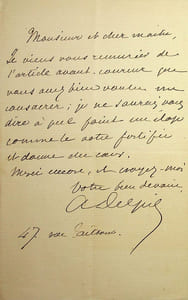 Monsieur et cher maître,
Je viens vous remercier de
l'article avant-coureur que
vous avez bien voulu me
consacrer; je ne saurais vous
dire à quel point un éloge
comme le votre fortifie
et donne du cœur.
Merci encore, et croyez-moi
Votre bien dévoué
47. rue